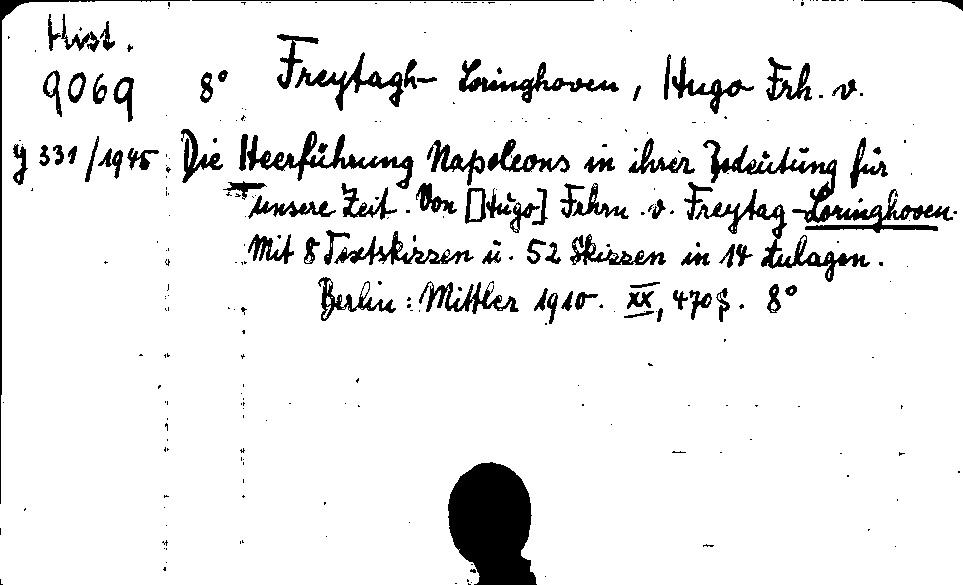 Hist.
9069 8° Freytagh-Loringhoven, Hugo Frh. v.
y 331/1945. Die Heerführung Napoleons in ihrer Bedeutung für
unsere Zeit. Von [Hugo] Frhrn. v. Freytag-Loringhoven.
Mit 8 Textskizzen u. 52 Skizzen in 14 Anlagen.
Berlin: Mittler 1910. XX, 470 S. 8°